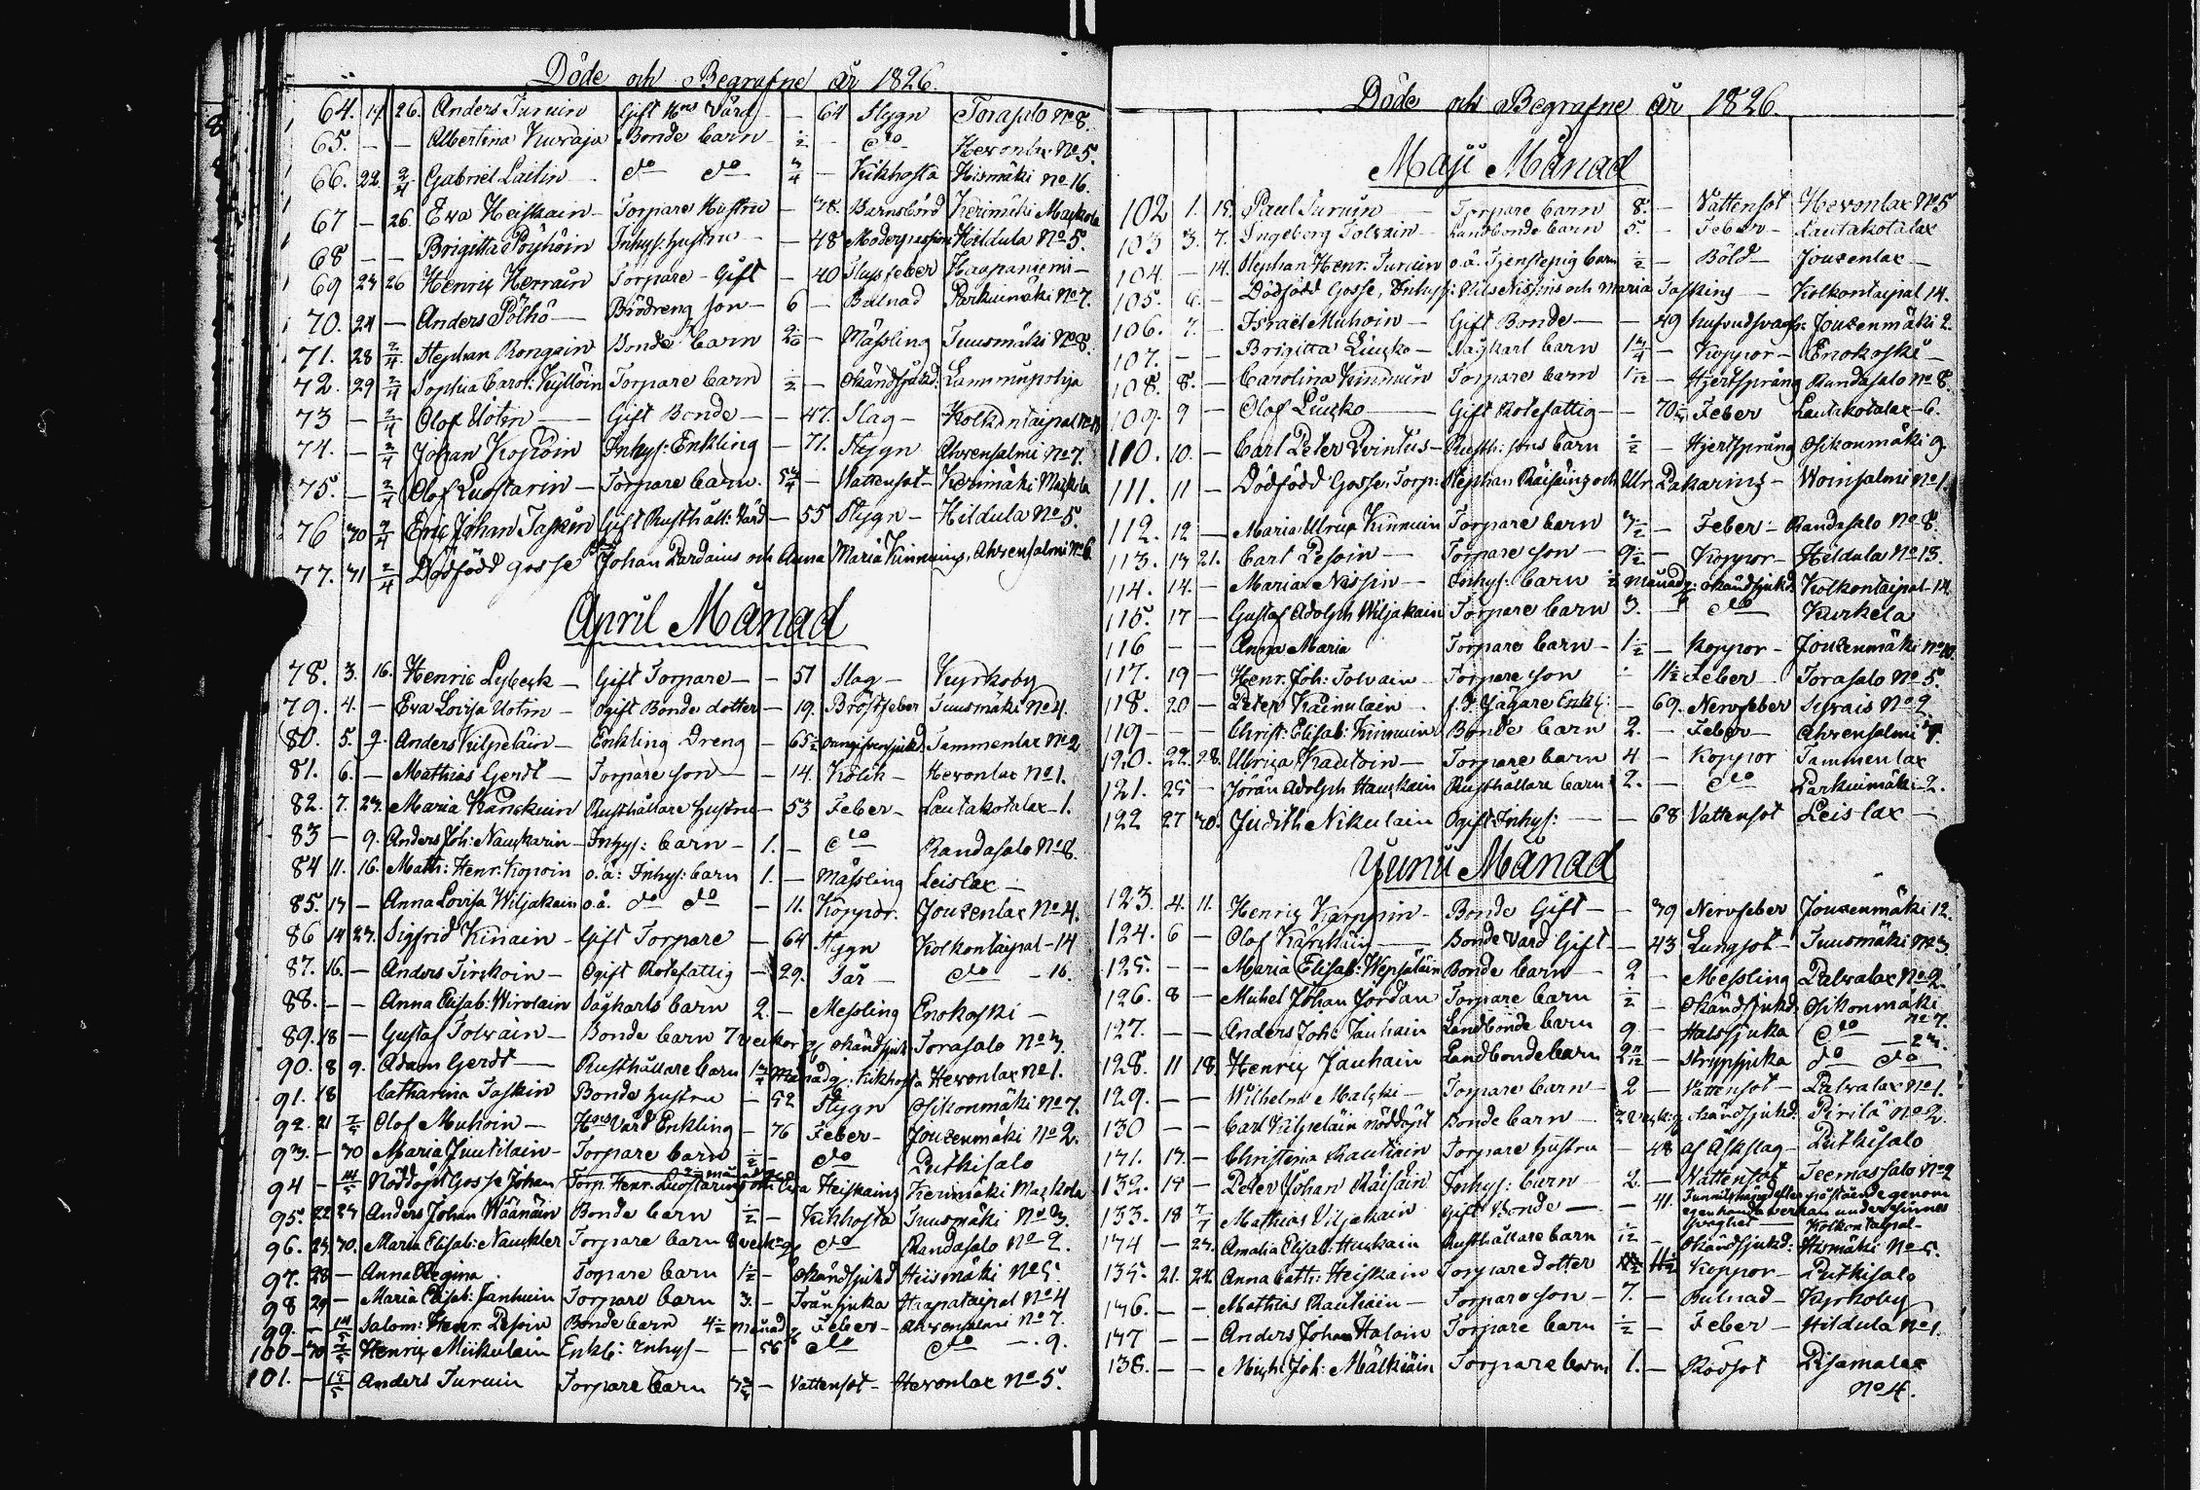 Döde och Begrafne år 1826.
64. 17 26. Anders Turuin Gift Värd - 64 Stygn Torasalo No 8.
65. - - Albertina Kuraja Bonde barn ½ - do Hevonlax No 5.
66. 22 2/4 Gabriel Laitin - do do 3/4 - Kikhosta Hismäki No 16.
67 - 26. Eva Heiskain - Torpare Hustru - 78. Barnsbörd Kerimäki Mackola
68 - - Brigitta Pöyhöin Inhys: hustru - 48 Moderpassion Hildula No 5.
69 23 26 Henric Herrain Torpare - Gift - 40 Flussfeber Haapaniemi -
70. 24 - Anders Pölhö - son - 6 - Bulnad Parkuimäki No 7.
71. 28 2/4 Stephan Rongain Bonde barn - Mässling Tuusmäki No 8.
72. 29 2/4 Sophia Carol: Kyllöin Torpare barn ½ - okändsjukd: Lammunpohja
73 - 2/4 Olof Uotin Gift Bonde - 47. Slag - Kolkontaipal
74. - 2/4 Johan Inhys: Enkling - 71. Stygn Ahvensalmi No 7.
75. - 2/4 Olof Luostarin - Torpare barn. 5¾ - Vattensot - Kerimäki Mackola
76 30 2/4 Eric Johan Taskin Gift Rusthåll: Värd - 55 Stygn - Hildula No 5.
77. 31 2/4 Dödfödd gosse Johan Pardains och Anna Maria Kinnuins, Ahvensalmi No 6
April Månad
78. 3. 16. Henric Lybeck - Gift Torpare - - 51 Slag - Kyrkoby
79. 4. - Eva Lovisa Uotin - ogift Bonde dotter - 19. Bröstfeber Tuusmäki No 4.
80. 5. 9. Anders Kilpeläin - Enkling Dreng - 65½ Tammenlax No 2
81. 6. - Mathias Gerdt - Torpare son - - 14. Kolik - Hevonlax No 1.
82. 7. 23. Maria Rusthållare hustru - 53 Feber - Lautakotalax - 1.
83 - 9. Anders Joh: Nauckarin - Inhys: barn - 1. - do Randasalo No 8.
84 11. 16. Math: Henr: Kopoin o.ä: Inhys: barn 1. - Mässling Leislax -
85. 13 - Anna Lovisa Wiljakain o.ä. do do - 11. Koppor. Jouxenlax No 4.
86 14 23. Sigfrid Kinain - Gift Torpare - 64 Stygn Kolkontaipal - 14
87. 16. - Anders Tirckoin - Ogift Rotefattig - 29. Sår - do - 16.
88. - - Anna Elisab: Wirolain Sågkarls barn 2. - Messling Enokoski -
89. 18 - Gustaf Tolvain - Bonde barn 7 veckor okändsjuk: Torasalo No 3.
90. 8 9. Adam Gerdt - Rusthållare barn Kikhosta Hevonlax No 1.
91. 18 Catharina Taskin Bonde hustru - 52 Stygn Osikonmäki No 7.
92. 21 7/5 Olof Muhoin - Värd Enkling - 76 Feber - Jouxenmäki No 2.
93. - 30 Maria Juutilain - Torpare barn ½ - do Putkisalo
94 - 14/5 Nöddöpt Gosse Johan Torp: Henr: Luostarins och Eva Heiskains Kerimäki Mackola
95. 22 23 Anders Johan Wäänäin Bonde barn ½ - Kikhosta Tuusmäki No 3.
96. 23 30. Maria Elisab: Nauckler Torpare barn 8 veck: do Randasalo No 2.
97. 28 - Anna Regina Torpare barn 1½ - okändsjukd Heismäki No 5.
98 29 - Maria Elisab: Janhuin Torpare barn 3. - Tränsjuka Haapataipal No 4
99. - 14/5 Salom: Henr: Pesoin Bonde barn 4½ Månad Feber - Ahvensalmi No 7.
100 - 30 Henric Miikulain Enkl: Inhys - - 56 do do - 9.
101. - 14/5 Anders Turuin Torpare barn - Vattensot - Hevonlax No 5.
Döde och Begrafne år 1826.
Maji Månad
102 1. 15. Paul Turuin Torpare barn 8. - Vattensot Hevonlax No 5
103 3. 7. Ingeborg Tolvain - Landbonde barn 5. - Feber - Lautakotalax
104 - 14. Stephan Henr: Turuin o.ä. Tjenstepig barn ½ - Böld - Jouxenlax -
105. 6. - Dödfödd Gosse, Inhys: Nils Nissins och Maria Taskins - Kolkontaipal 14.
106. 7. - Israel Muhoin - Gift Bonde - - 49 hufvudsvagh: Jouxenmäki 2.
107. - - Brigitta Liucko - Sågkarl barn 1¾ - Koppor - Enokoski -
108. 8. - Carolina Kinnuin Torpare barn 1/12 - Hjertsprång Randasalo No 8.
109. 9 - Olof Liucko - Gift Rotefattig - 70 Feber Lautakotalax - 6.
110. 10. - Carl Peter Printus - Rusth: sons barn ½ - Hjertsprång Osikonmäki 9.
111. 11 - Dödfödd Gosse, Torp: Stephan Räisäins och Ulr: Pakarins - Woinsalmi No 1.
112. 12 - Maria Ulrica Kinnuin Torpare barn - Feber - Randasalo No 8.
113. 13 21. Carl Pesoin - Torpare son - 9½ - Koppor - Hildula No 13.
114. 14. - Maria Nissin - Inhys: barn ½ månad: okändsjukd: Kolkontaipal - 14.
115. 17 - Gustaf Adolph Wiljakain Torpare barn 3. - do Kurkela
116 - - Anna Maria Torpare barn - 1½ - Koppor - Jouxenmäki No 10.
117. 19 - Henr: Joh: Tolvain - Torpare son - 11½ Feber - Torasalo No 5.
118. 20 - Peter Kainulain Jägare Enkl: - 69. Nervfeber Turais No 2
119 - - - Christ: Elisab: Kinnuin Bonde barn 2. - Feber - Ahvensalmi
120. 22. 28. Ulrica Kautoin - Torpare barn 4 - Koppor Tammenlax
121. 25 - Jöran Adolph Hauckain Rusthållare barn 2. - do Parkuimäki - 2.
122 27 30. Judith Nikulain Ogift Inhys: - - 68 Vattensot Leislax -
Junii Månad
123. 4. 11. Henric Karppin - Bonde Gift - - 39 Nervfeber Jouxenmäki 12.
124. 6 - Olof Bonde Värd Gift - 43 Lungsot - Tuusmäki No 3.
125. - - Maria Elisab: Wepsäläin Bonde barn - 2 - Messling Palvalax No 2.
126. 8 - Michel Johan Jordan Torpare barn ½ - okändsjukd: Osikonmäki No 7.
127. - - Anders Joh: Jauhain Landbonde barn 9. - Halssjuka do - 23.
128. 11 18. Henric Jauhain Landbonde barn - Strypsjuka do do
129. - - Wilhelm Malcki - Torpare barn - 2 - Vattensot - Palvalax No 1.
130 - - Carl Kilpeläin nöddöpt Bonde barn - okändsjukd: Pirilä No 2.
131. 13. - Christina Rautiain Torpare hustru - 48 af Åskslag - Putkisalo
132. 14 - Peter Johan Räisäin Inhys: barn - 2. - Vattensot Teemassalo No 2
133. 18 7/7 Mathias Viljakain Gift Bonde - - 41. egenhands verkan under sinnes svaghet - Kolkontaipal -
134 - 23. Amalia Elisab: Huckain Rusthållare barn 1/12 - okändsjukd: Hismäki No 5.
135. 21. 24. Anna Cath: Heiskain Torpare dotter Koppor - Putkisalo
136. - - Mathias Rautiain - Torpare son - 7. - Bulnad - Kyrkoby
137 - - Anders Johan Halain Torpare barn ½ - Feber - Hildula No 1.
138. - - Mich: Joh: Mälkiäin Torpare barn 1. - Rödsot Pisamalax
No 4.